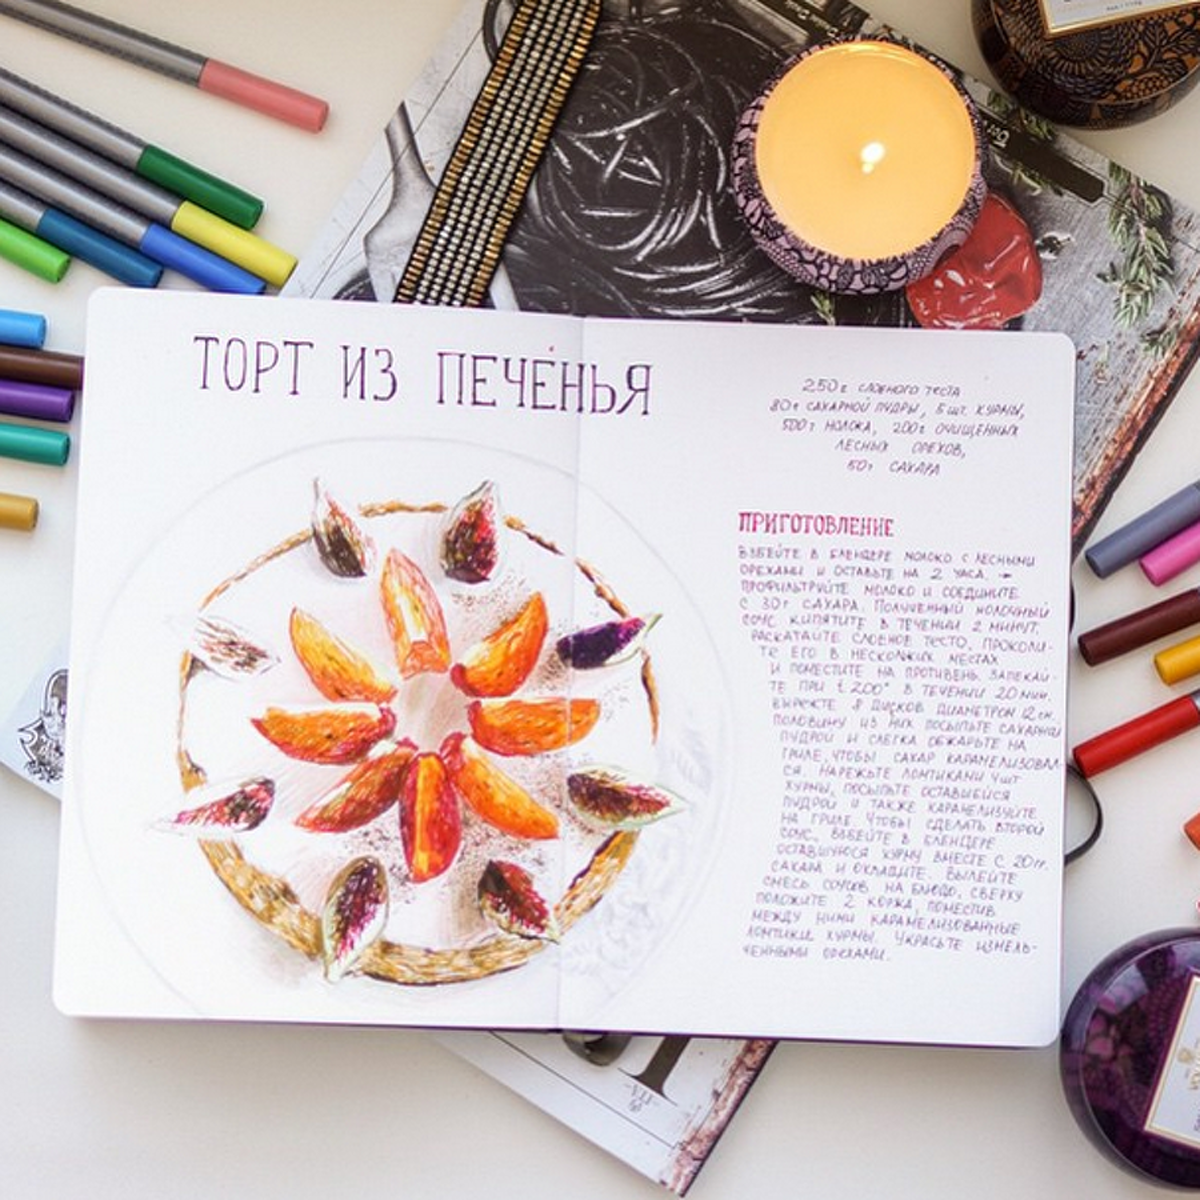 ТОРТ ИЗ ПЕЧЕНЬЯ
250г слоеного теста
80г сахарной пудры, 5 шт. хурмы,
500г молока, 200г очищенных
лесных орехов,
50г сахара
ПРИГОТОВЛЕНИЕ
Взбейте в блендере молоко с лесными
орехами и оставьте на 2 часа.
Профильтруйте молоко и соедините
с 30г сахара. Полученный молочный
соус кипятите в течении 2 минут.
Раскатайте слоеное тесто, проколи-
те его в нескольких местах
и поместите на противень. Запекай-
те при t 200° в течении 20 мин.
Вырежте 8 дисков диаметром 12 см.
Половину из них посыпьте сахарной
пудрой и слегка обжарьте на
гриле, чтобы сахар карамелизовал-
ся. Нарежьте ломтиками 4 шт
хурмы, посыпьте оставшейся
пудрой и также карамелизуйте
на гриле. Чтобы сделать второй
соус, взбейте в блендере
оставшуюся хурму вместе с 20гг.
сахара и охладите. Вылейте
смесь соусов на блюдо, сверху
положите 2 коржа, поместив
между ними карамелизованные
ломтики хурмы. Украсьте измель-
ченными орехами.